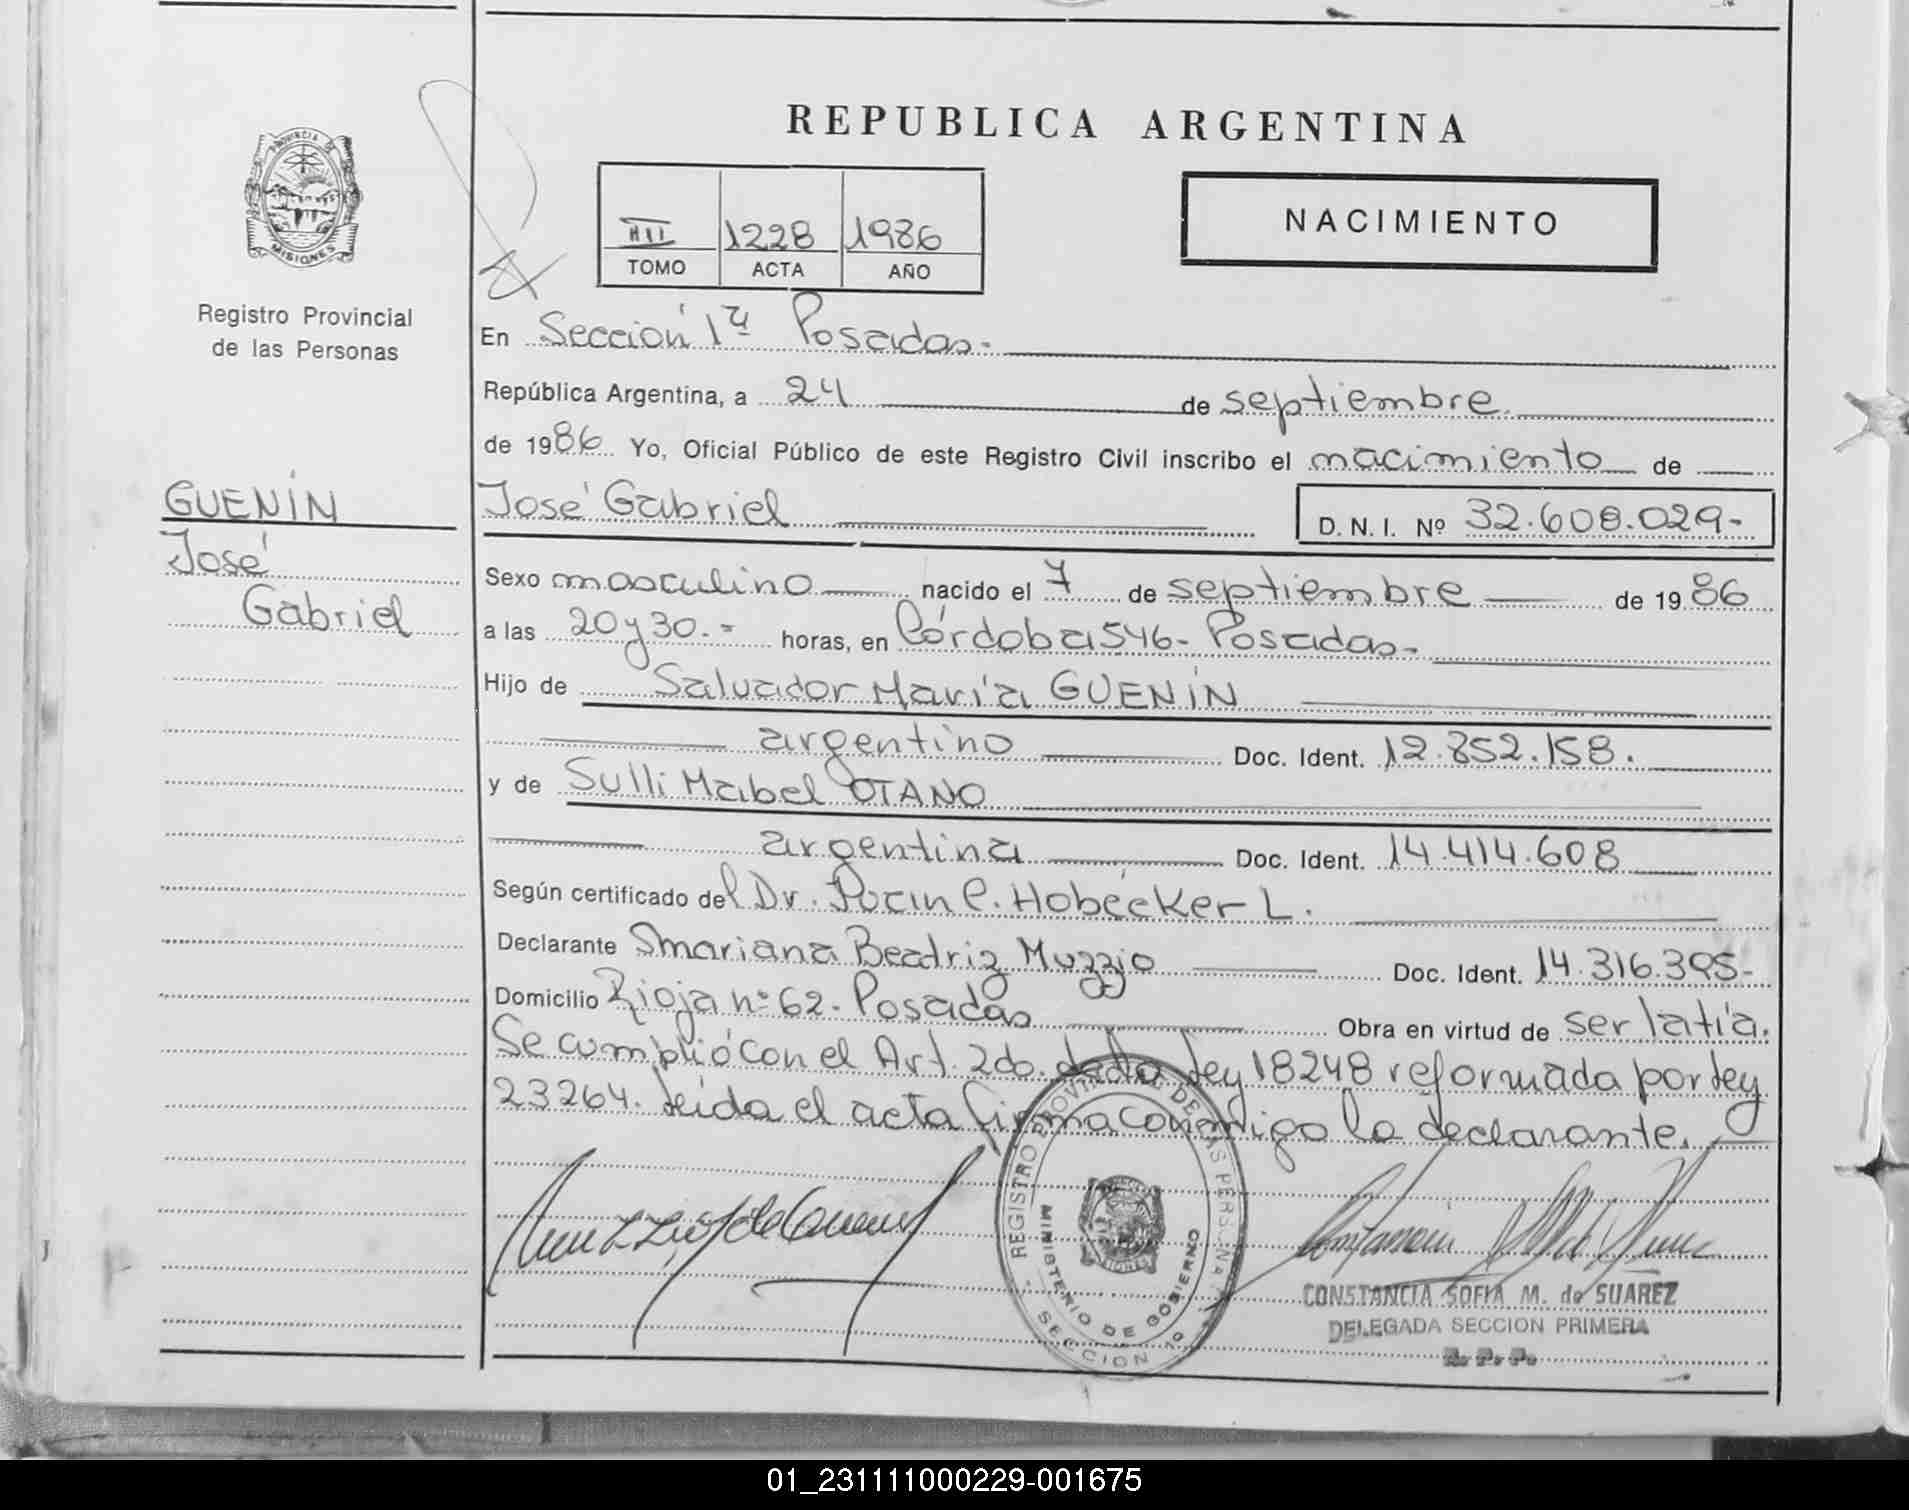 REPUBLICA ARGENTINA
PROVINCIA DE
MISIONES
Registro Provincial
de las Personas
III 1228 1986
TOMO ACTA AÑO
NACIMIENTO
En Sección 1ª Posadas.
República Argentina, a 24 de septiembre
de 1986 Yo, Oficial Público de este Registro Civil inscribo el nacimiento de
GUENÍN
José
Gabriel
José Gabriel D. N. I. Nº 32.608.029-
Sexo masculino nacido el 7 de septiembre de 1986
a las 20 y 30.= horas, en Córdoba 546- Posadas-
Hijo de Salvador María GUENÍN
argentino Doc. Ident. 12.852.158.
y de Sulli Mabel OTANO
argentina Doc. Ident. 14.414.608
Según certificado del Dr. C. Hobecker L.
Declarante Smariana Beatriz Muzzio Doc. Ident. 14.316.395-
Domicilio Rioja nº 62. Posadas Obra en virtud de ser la tía.
Se cumplió con el Art. 2do. de la Ley 18248 reformada por Ley
23264. Leída el acta firma conmigo la declarante.
REGISTRO PROVINCIAL DE LAS PERSONAS
MINISTERIO DE GOBIERNO
SECCION 1º
MISIONES
CONSTANCIA SOFIA M. de SUAREZ
DELEGADA SECCION PRIMERA
R. P. P.
01_231111000229-001675